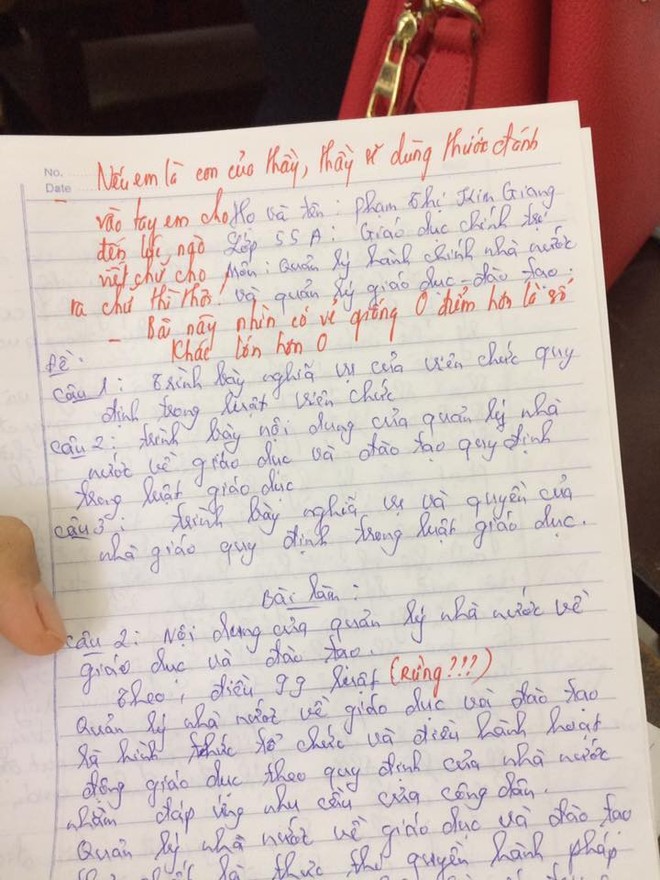 No.
Date
- Nếu em là con của thầy, thầy sẽ dùng thước đánh
vào tay em cho
đến lúc nào
viết chữ cho
ra chữ thì thôi!
Họ và tên: Phạm Thị Kim Giang
Lớp 55A: Giáo dục chính trị
Môn: Quản lý hành chính nhà nước
và quản lý giáo dục - đào tạo.
- Bài này nhìn có vẻ giống 0 điểm hơn là số
khác lớn hơn 0
Đề:
Câu 1: Trình bày nghĩa vụ của viên chức quy
định trong luật viên chức
Câu 2: Trình bày nội dung của quản lý nhà
nước về giáo dục và đào tạo quy định
trong luật giáo dục
Câu 3: Trình bày nghĩa vụ và quyền của
nhà giáo quy định trong luật giáo dục.
Bài làm:
Câu 2: Nội dung của quản lý nhà nước về
giáo dục và đào tạo.
Theo: điều 99 luật (Rừng???)
Quản lý nhà nước về giáo dục và đào tạo
là hình thức tổ chức và điều hành hoạt
động giáo dục theo quy định của nhà nước
nhằm đáp ứng nhu cầu của công dân.
Quản lý nhà nước về giáo dục và đào tạo
là thực thi quyền hành pháp